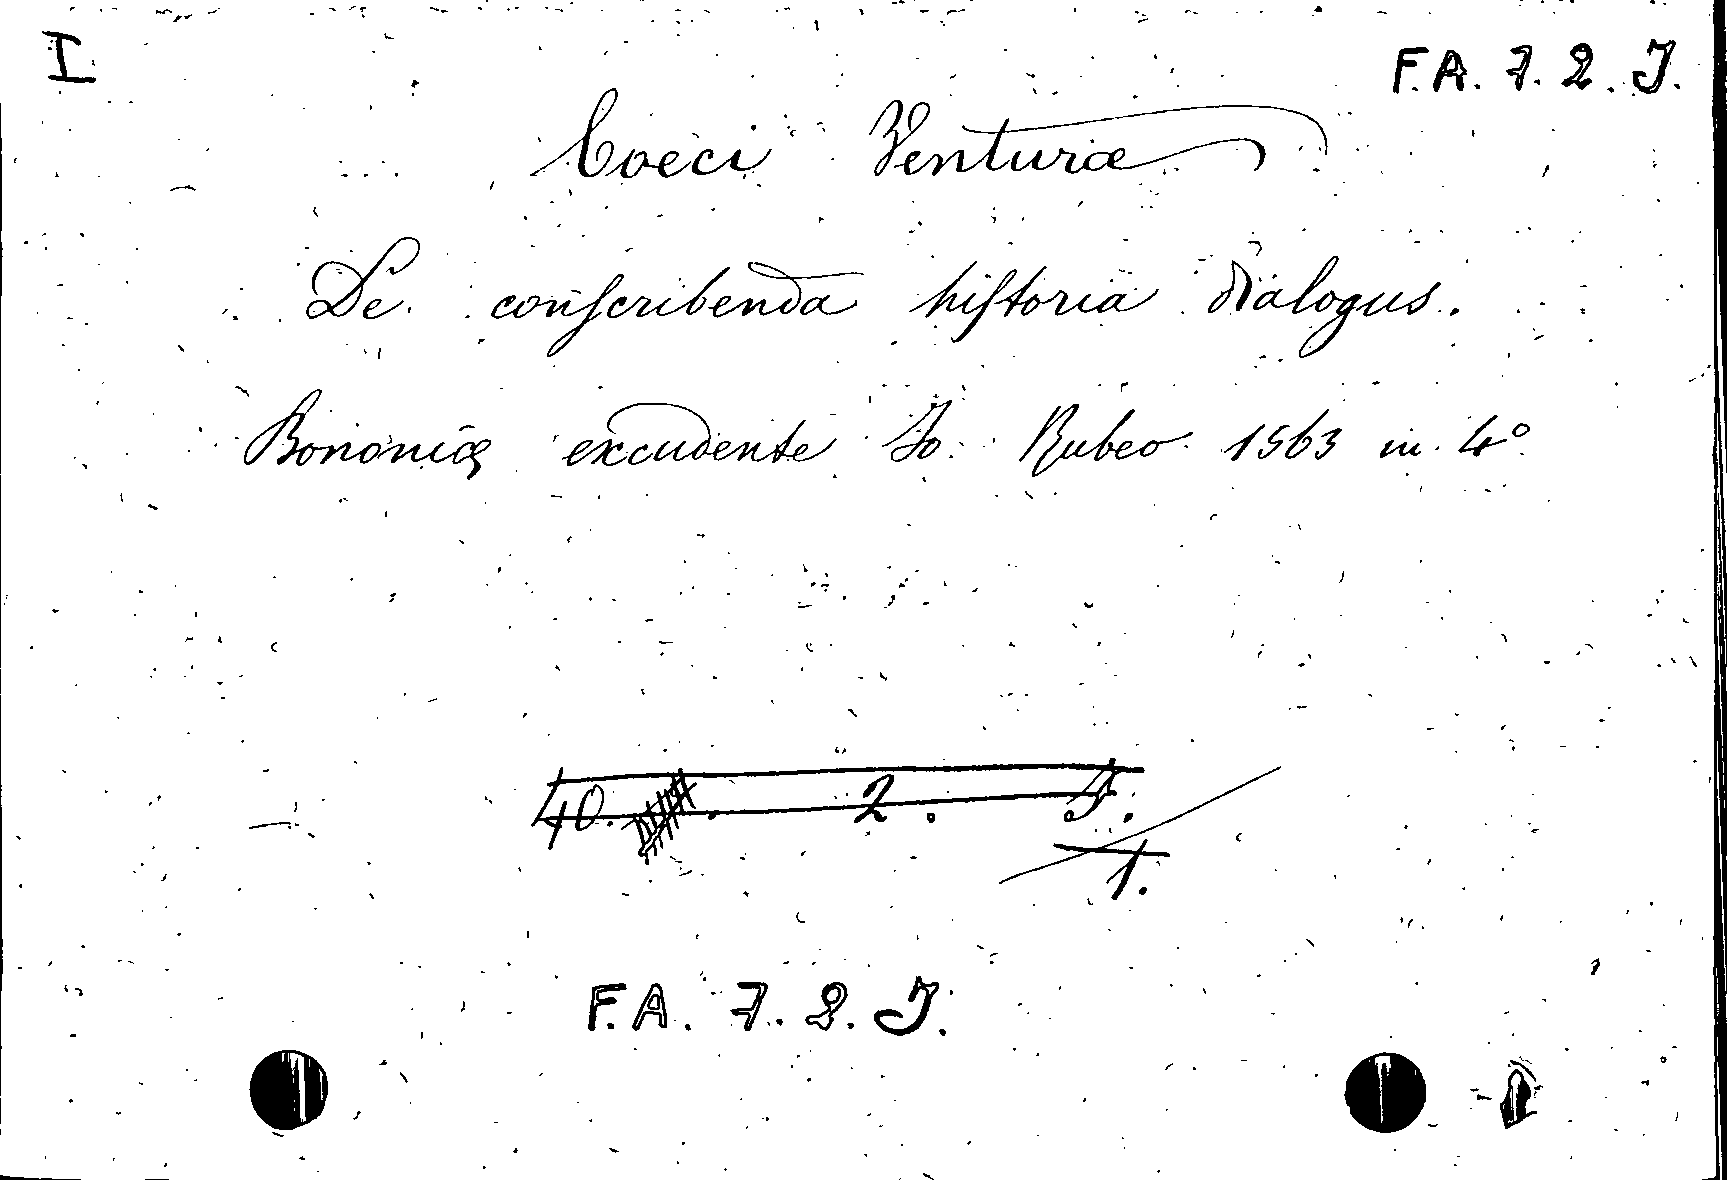 I
F. A. 7. 2. J.
Coeci Venturæ
De conscribenda historia dialogus.
Bononiæ excudente Jo. Rubeo 1563 in 4°
40. . 2. J.
1.
F. A. 7. 2. J.